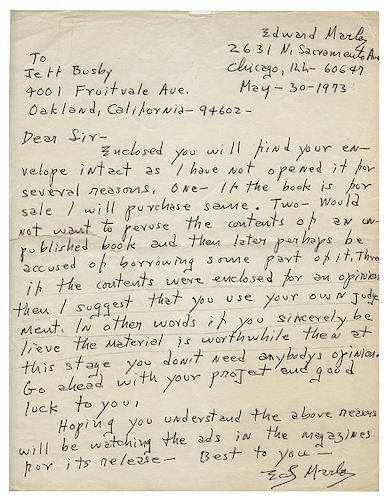 Edward Marlo
2631 N. Sacramento Ave
Chicago, Ill - 60647
May - 30 - 1973
To
Jeff Busby
4001 Fruitvale Ave.
Oakland, California - 94602 -
Dear Sir -
Enclosed you will find your en-
velope intact as I have not opened it for
several reasons. One - If the book is for
sale I will purchase same. Two - Would
not want to peruse the contents of an un-
published book and then later perhaps be
accused of borrowing some part of it. Three
if the contents were enclosed for an opinion
then I suggest that you use your own judge
ment. In other words if you sincerely be
lieve the material is worthwhile then at
this stage you don't need anybodys opinion.
Go ahead with your project and good
luck to you,
Hoping you understand the above reasons
will be watching the ads in the magazines
for its release - Best to you -
Ed Marlo